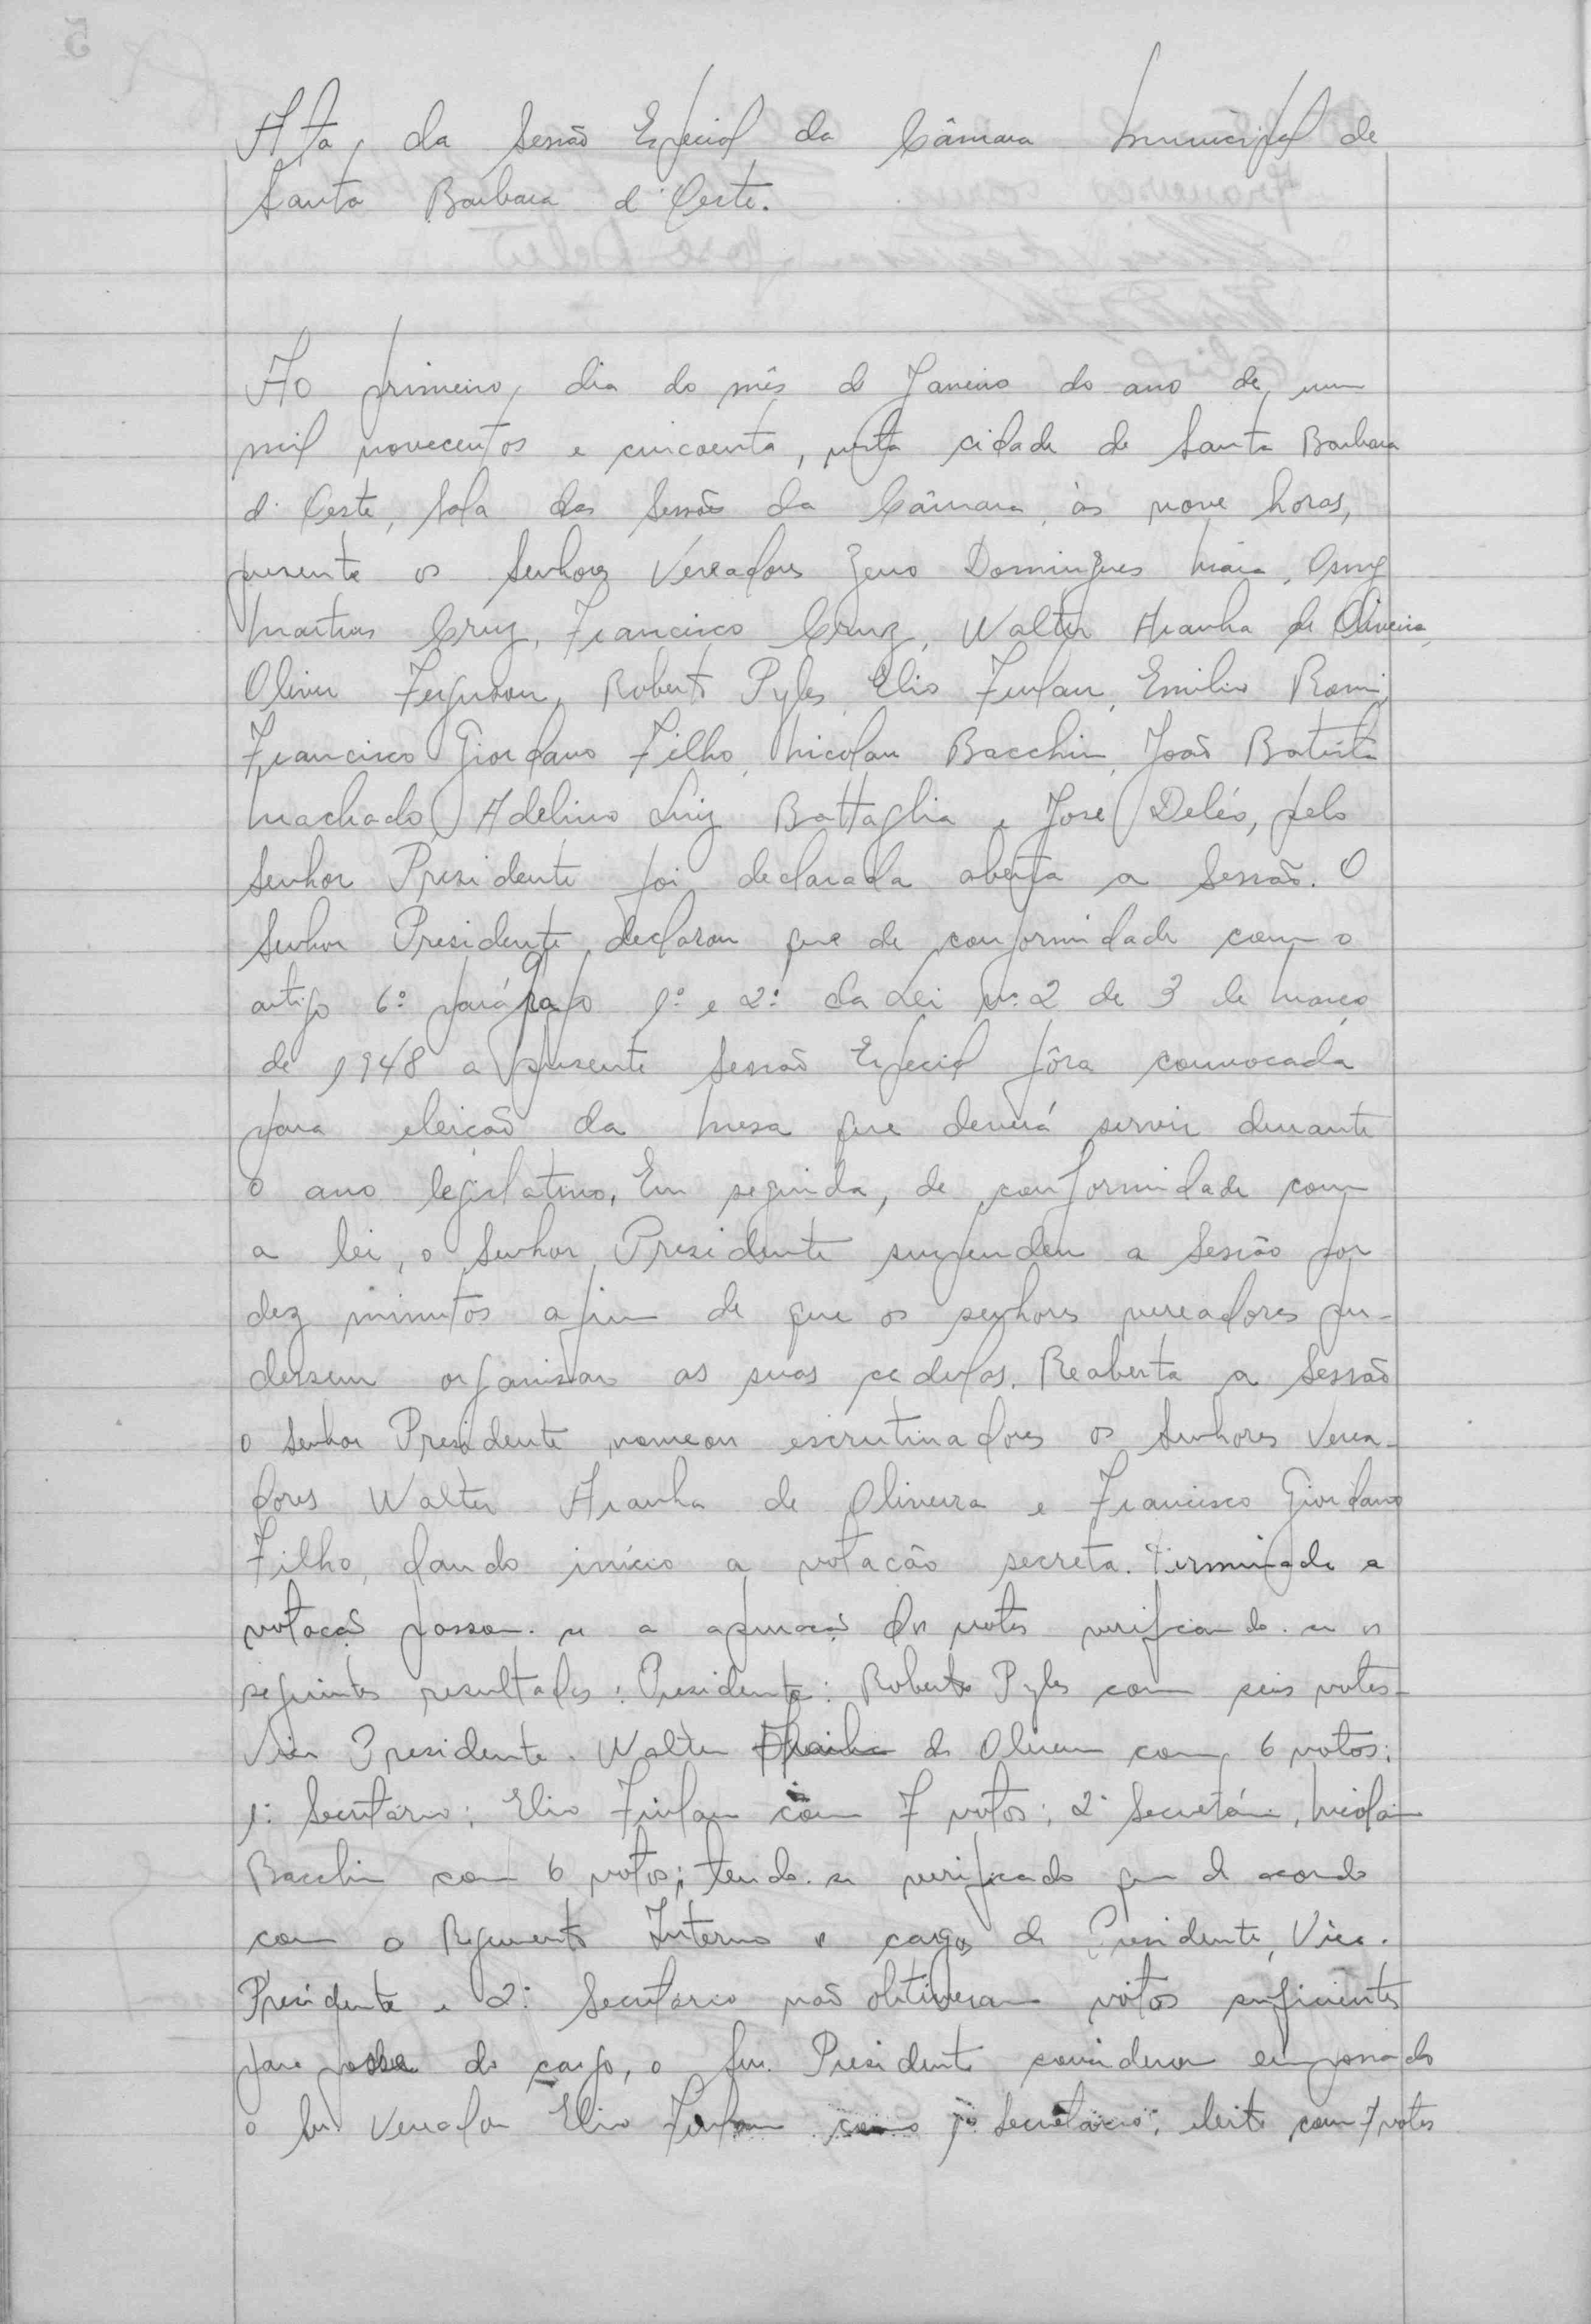 Ata da Sessão Especial da Câmara Municipal de
Santa Barbara d'Oeste.
Ao primeiro dia do mês de Janeiro do ano de um
mil novecentos e cincoenta, nesta cidade de Santa Barbara
d'Oeste, Sala das Sessões da Câmara, às nove horas,
presente os Senhores Vereadores Zeno Domingues Maia, Osmy
Martins Cruz, Francisco Cruz, Walter Aranha de Oliveira,
Oliver Ferguson, Roberto Pyles, Elio Furlan, Emilio Romi,
Francisco Giordano Filho, Nicolau Bacchin, João Batista
Machado, Adelino Luiz Battaglia e José Deléo, pelo
Senhor Presidente foi declarada aberta a Sessão. O
Senhor Presidente declarou que de conformidade com o
artigo 6º parágrafo 1º e 2º da Lei Nº 2 de 3 de março
de 1948 a presente Sessão Especial fôra convocada
para eleição da Mesa que deverá servir durante
o ano legislativo. Em seguida, de conformidade com
a lei, o Senhor Presidente suspendeu a Sessão por
dez minutos afim de que os senhores vereadores pu-
dessem organisar as suas cedulas. Reaberta a Sessão
o Senhor Presidente nomeou escrutinadores os Senhores Verea-
dores Walter Aranha de Oliveira e Francisco Giordano
Filho, dando início a votação secreta. Terminada a
votação passou-se a apuração dos votos verificando-se os
seguintes resultados: Presidente: Roberto Pyles com seis votos-
Vice Presidente. Walter Aranha de Oliveira com 6 votos;
1º Secretário: Elio Furlan com 7 votos; 2º Secretário, Nicolau
Bacchin com 6 votos; tendo-se verificado que de acordo
com o Regimento Interno os cargos de Presidente, Vice-
Presidente e 2º Secretário não obtiveram votos suficientes
para posse do cargo, o Snr. Presidente considerou empossado
o Snr Vereador Elio Furlan como 1º Secretário; eleito com 7 votos